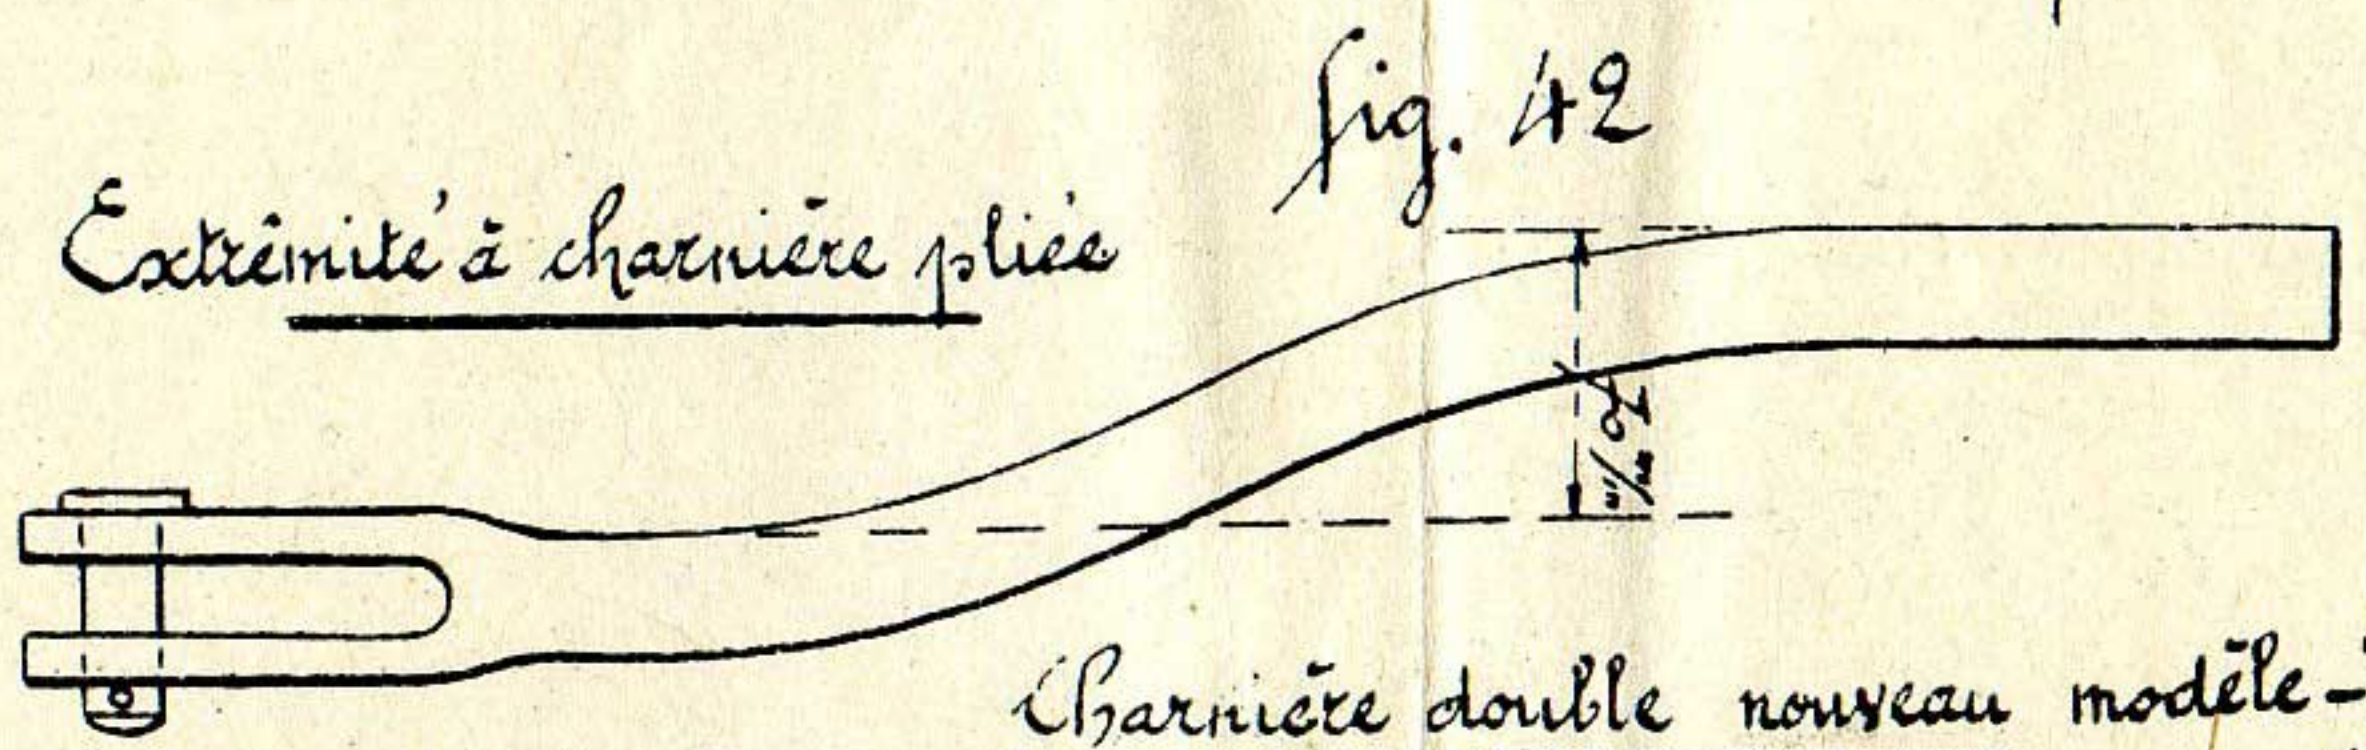 fig. 42
Extrêmité à charnière pliée
Charnière double nouveau modèle -